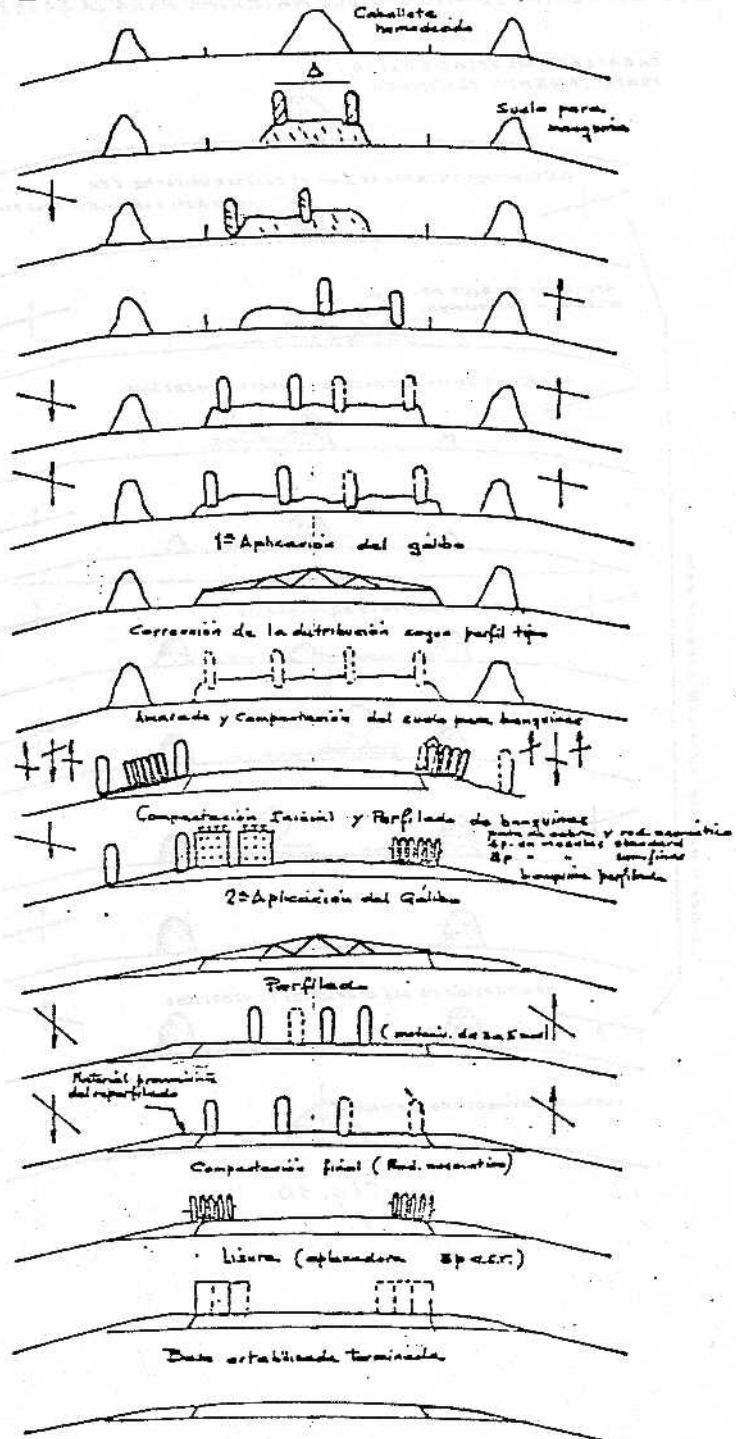 Caballete
humedecido
Δ
Suelo para
banquina
1ª Aplicación del gálibo
Corrección de la distribución según perfil tipo
y Compactación del suelo para banquinas
Compactación Inicial y Perfilado de banquinas
pata de cabra y rod. neumático
8p. en mezclas standard
8p " " con finos
banquina perfilada
2ª Aplicación del Gálibo
Perfilado
(motoniv. de 3 a 5
Material proveniente
del reperfilado
Compactación final (Rod. neumático)
Lisura (aplanadora 8p c.s.r.)
Base estabilizada terminada